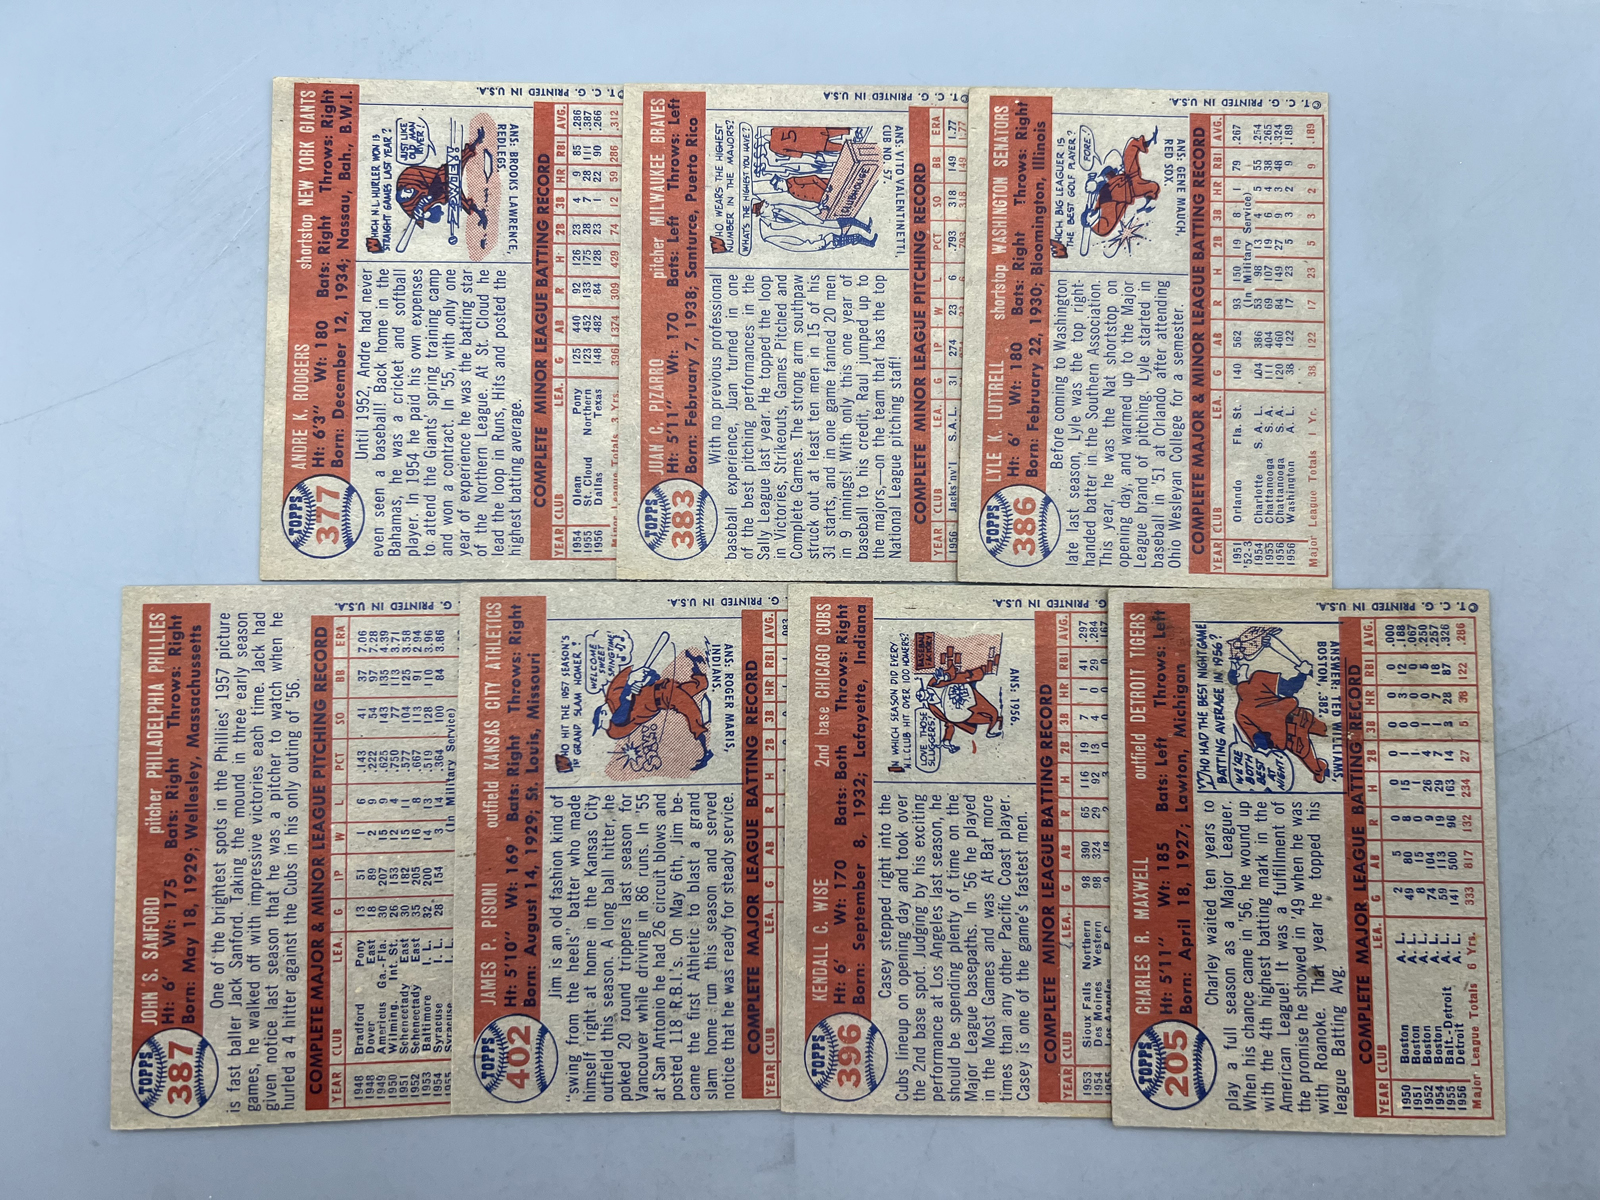 TOPPS
377
ANDRE K. RODGERS shortstop NEW YORK GIANTS
Ht: 6'3" Wt: 180 Bats: Right Throws: Right
Born: December 12, 1934; Nassau, Bah., B.W.I.
Until 1952, Andre had never
even seen a baseball! Back home in the
Bahamas, he was a cricket and softball
player. In 1954 he paid his own expenses
to attend the Giants' spring training camp
and won a contract. In '55, with only one
year of experience he was the batting star
of the Northern League. At St. Cloud he
lead the loop in Runs, Hits and posted the
highest batting average.
WHICH N.L. HURLER WON 13
STRAIGHT GAMES LAST YEAR?
JUST LIKE
OLD MAN
RIVER!
ANS: BROOKS LAWRENCE,
REDLEGS.
COMPLETE MINOR LEAGUE BATTING RECORD
YEAR CLUB LEA. G AB R H 2B 3B HR RBI AVG.
1954 Olean Pony 125 440 92 126 23 4 9 85 .286
1955 St. Cloud Northern 123 452 133 175 28 7 28 111 .387
1956 Dallas Texas 148 482 84 128 23 1 22 90 .266
Minor League Totals 3 Yrs. 396 1374 309 429 74 12 59 286 .312
©T. C. G. PRINTED IN U.S.A.
TOPPS
383
JUAN C. PIZARRO pitcher MILWAUKEE BRAVES
Ht: 5'11" Wt: 170 Bats: Left Throws: Left
Born: February 7, 1938; Santurce, Puerto Rico
With no previous professional
baseball experience, Juan turned in one
of the best pitching performances in the
Sally League last year. He topped the loop
in Victories, Strikeouts, Games Pitched and
Complete Games. The strong arm southpaw
struck out at least ten men in 15 of his
31 starts, and in one game fanned 20 men
in 9 innings! With only this one year of
baseball to his credit, Raul jumped up to
the majors,—on the team that has the top
National League pitching staff!
WHO WEARS THE HIGHEST
NUMBER IN THE MAJORS?
WHAT'S THE HIGHEST YOU HAVE?
5
CLUBHOUSE
ANS: VITO VALENTINETTI,
CUB NO. 57.
COMPLETE MINOR LEAGUE PITCHING RECORD
YEAR CLUB LEA. G IP W L PCT SO BB ERA
1956 Jacks'nv'l S.A.L. 31 274 23 6 .793 318 149 1.77
©T. C. G. PRINTED IN U.S.A.
TOPPS
386
LYLE K. LUTTRELL shortstop WASHINGTON SENATORS
Ht: 6' Wt: 180 Bats: Right Throws: Right
Born: February 22, 1930; Bloomington, Illinois
Before coming to Washington
late last season, Lyle was the top right-
handed batter in the Southern Association.
This year, he was the Nat shortstop on
opening day, and warmed up to the Major
League brand of pitching. Lyle started in
baseball in '51 at Orlando after attending
Ohio Wesleyan College for a semester.
WHICH BIG LEAGUER IS
THE BEST GOLF PLAYER?
FORE!
ANS: GENE MAUCH,
RED SOX.
COMPLETE MAJOR & MINOR LEAGUE BATTING RECORD
YEAR CLUB LEA. G AB R H 2B 3B HR RBI AVG.
1951 Orlando Fla. St. 140 562 93 150 19 8 1 79 .267
'52-3 (In Military Service)
1954 Charlotte S. A. L. 104 386 53 98 13 4 5 55 .254
1955 Chattanooga S. A. 111 404 69 107 19 6 4 38 .265
1956 Chattanooga S. A. 120 460 84 149 27 9 3 48 .324
1956 Washington A. L. 38 122 17 23 5 3 2 9 .189
Major League Totals 1 Yr. 38 122 17 23 5 3 2 9 .189
©T. C. G. PRINTED IN U.S.A.
TOPPS
387
JOHN S. SANFORD pitcher PHILADELPHIA PHILLIES
Ht: 6' Wt: 175 Bats: Right Throws: Right
Born: May 18, 1929; Wellesley, Massachusetts
One of the brightest spots in the Phillies' 1957 picture
is fast baller Jack Sanford. Taking the mound in three early season
games, he walked off with impressive victories each time. Jack had
given notice last season that he was a pitcher to watch when he
hurled a 4 hitter against the Cubs in his only outing of '56.
COMPLETE MAJOR & MINOR LEAGUE PITCHING RECORD
YEAR CLUB LEA. G IP W L PCT SO BB ERA
1948 Bradford Pony 13 51 1 6 .143 41 37 7.06
1948 Dover East 18 89 2 9 .222 54 97 7.28
1949 Americus Ga.-Fla. 30 207 15 9 .625 143 135 4.39
1950 Wilming. Int. St. 26 153 12 4 .750 77 113 3.71
1951 Schenectady East 30 182 15 11 .577 104 125 3.58
1952 Schenectady East 35 205 16 8 .667 113 91 2.94
1953 Baltimore I. L. 32 200 14 13 .519 128 110 3.96
1954 Syracuse I. L. 28 154 3 14 .364 100 84 3.86
1955 Syracuse (In Military Service)
G. PRINTED IN U.S.A.
TOPPS
402
JAMES P. PISONI outfield KANSAS CITY ATHLETICS
Ht: 5'10" Wt: 169 Bats: Right Throws: Right
Born: August 14, 1929; St. Louis, Missouri
Jim is an old fashion kind of
"swing from the heels" batter who made
himself right at home in the Kansas City
outfield this season. A long ball hitter, he
poked 20 round trippers last season for
Vancouver while driving in 86 runs. In '55
at San Antonio he had 26 circuit blows and
posted 118 R.B.I.'s. On May 6th, Jim be-
came the first Athletic to blast a grand
slam home run this season and served
notice that he was ready for steady service.
WHO HIT THE 1957 SEASON'S
1ST GRAND SLAM HOMER?
WELCOME
SWEET
SPRINGTIME
ANS: ROGER MARIS,
INDIANS.
COMPLETE MAJOR LEAGUE BATTING RECORD
YEAR CLUB LEA. G AB R H 2B 3B HR RBI AVG.
G. PRINTED IN U.S.A.
TOPPS
396
KENDALL C. WISE 2nd base CHICAGO CUBS
Ht: 6' Wt: 170 Bats: Both Throws: Right
Born: September 8, 1932; Lafayette, Indiana
Casey stepped right into the
Cubs lineup on opening day and took over
the 2nd base spot. Judging by his exciting
performance at Los Angeles last season, he
should be spending plenty of time on the
Major League basepaths. In '56 he played
in the Most Games and was At Bat more
times than any other Pacific Coast player.
Casey is one of the game's fastest men.
IN WHICH SEASON DID EVERY
N.L. CLUB HIT OVER 100 HOMERS?
LOVE THOSE
SLUGGERS!
BASEBALL
FACTORY
ANS: 1956.
COMPLETE MINOR LEAGUE BATTING RECORD
YEAR CLUB LEA. G AB R H 2B 3B HR RBI AVG.
1953 Sioux Falls Northern 98 390 65 116 19 7 1 41 .297
1954 Des Moines Western 98 324 29 92 13 4 0 29 .284
G. PRINTED IN U.S.A.
TOPPS
205
CHARLES R. MAXWELL outfield DETROIT TIGERS
Ht: 5'11" Wt: 185 Bats: Left Throws: Left
Born: April 18, 1927; Lawton, Michigan
Charley waited ten years to
play a full season as a Major Leaguer.
When his chance came in '56, he wound up
with the 4th highest batting mark in the
American League! It was a fulfillment of
the promise he showed in '49 when he was
with Roanoke. That year he topped his
league Batting Avg.
WHO HAD THE BEST NIGHT GAME
BATTING AVERAGE IN 1956?
WE'RE
BOTH
BEST
AT
NIGHT!
ANSWER: TED WILLIAMS
BOSTON
.382.
COMPLETE MAJOR LEAGUE BATTING RECORD
YEAR CLUB LEA. G AB R H 2B 3B HR RBI AVG.
1950 Boston A. L. 2 5 0 0 0 0 0 0 .000
1951 Boston A. L. 49 80 8 15 1 0 3 12 .188
1952 Boston A. L. 8 15 1 1 1 0 0 0 .067
1954 Boston A. L. 74 104 9 26 4 1 0 5 .250
1955 Balt.-Detroit A. L. 59 113 19 29 7 1 7 18 .257
1956 Detroit A. L. 141 500 96 163 14 3 28 87 .326
Major League Totals 6 Yrs. 333 817 132 234 27 5 38 122 .286
©T. C. G. PRINTED IN U.S.A.